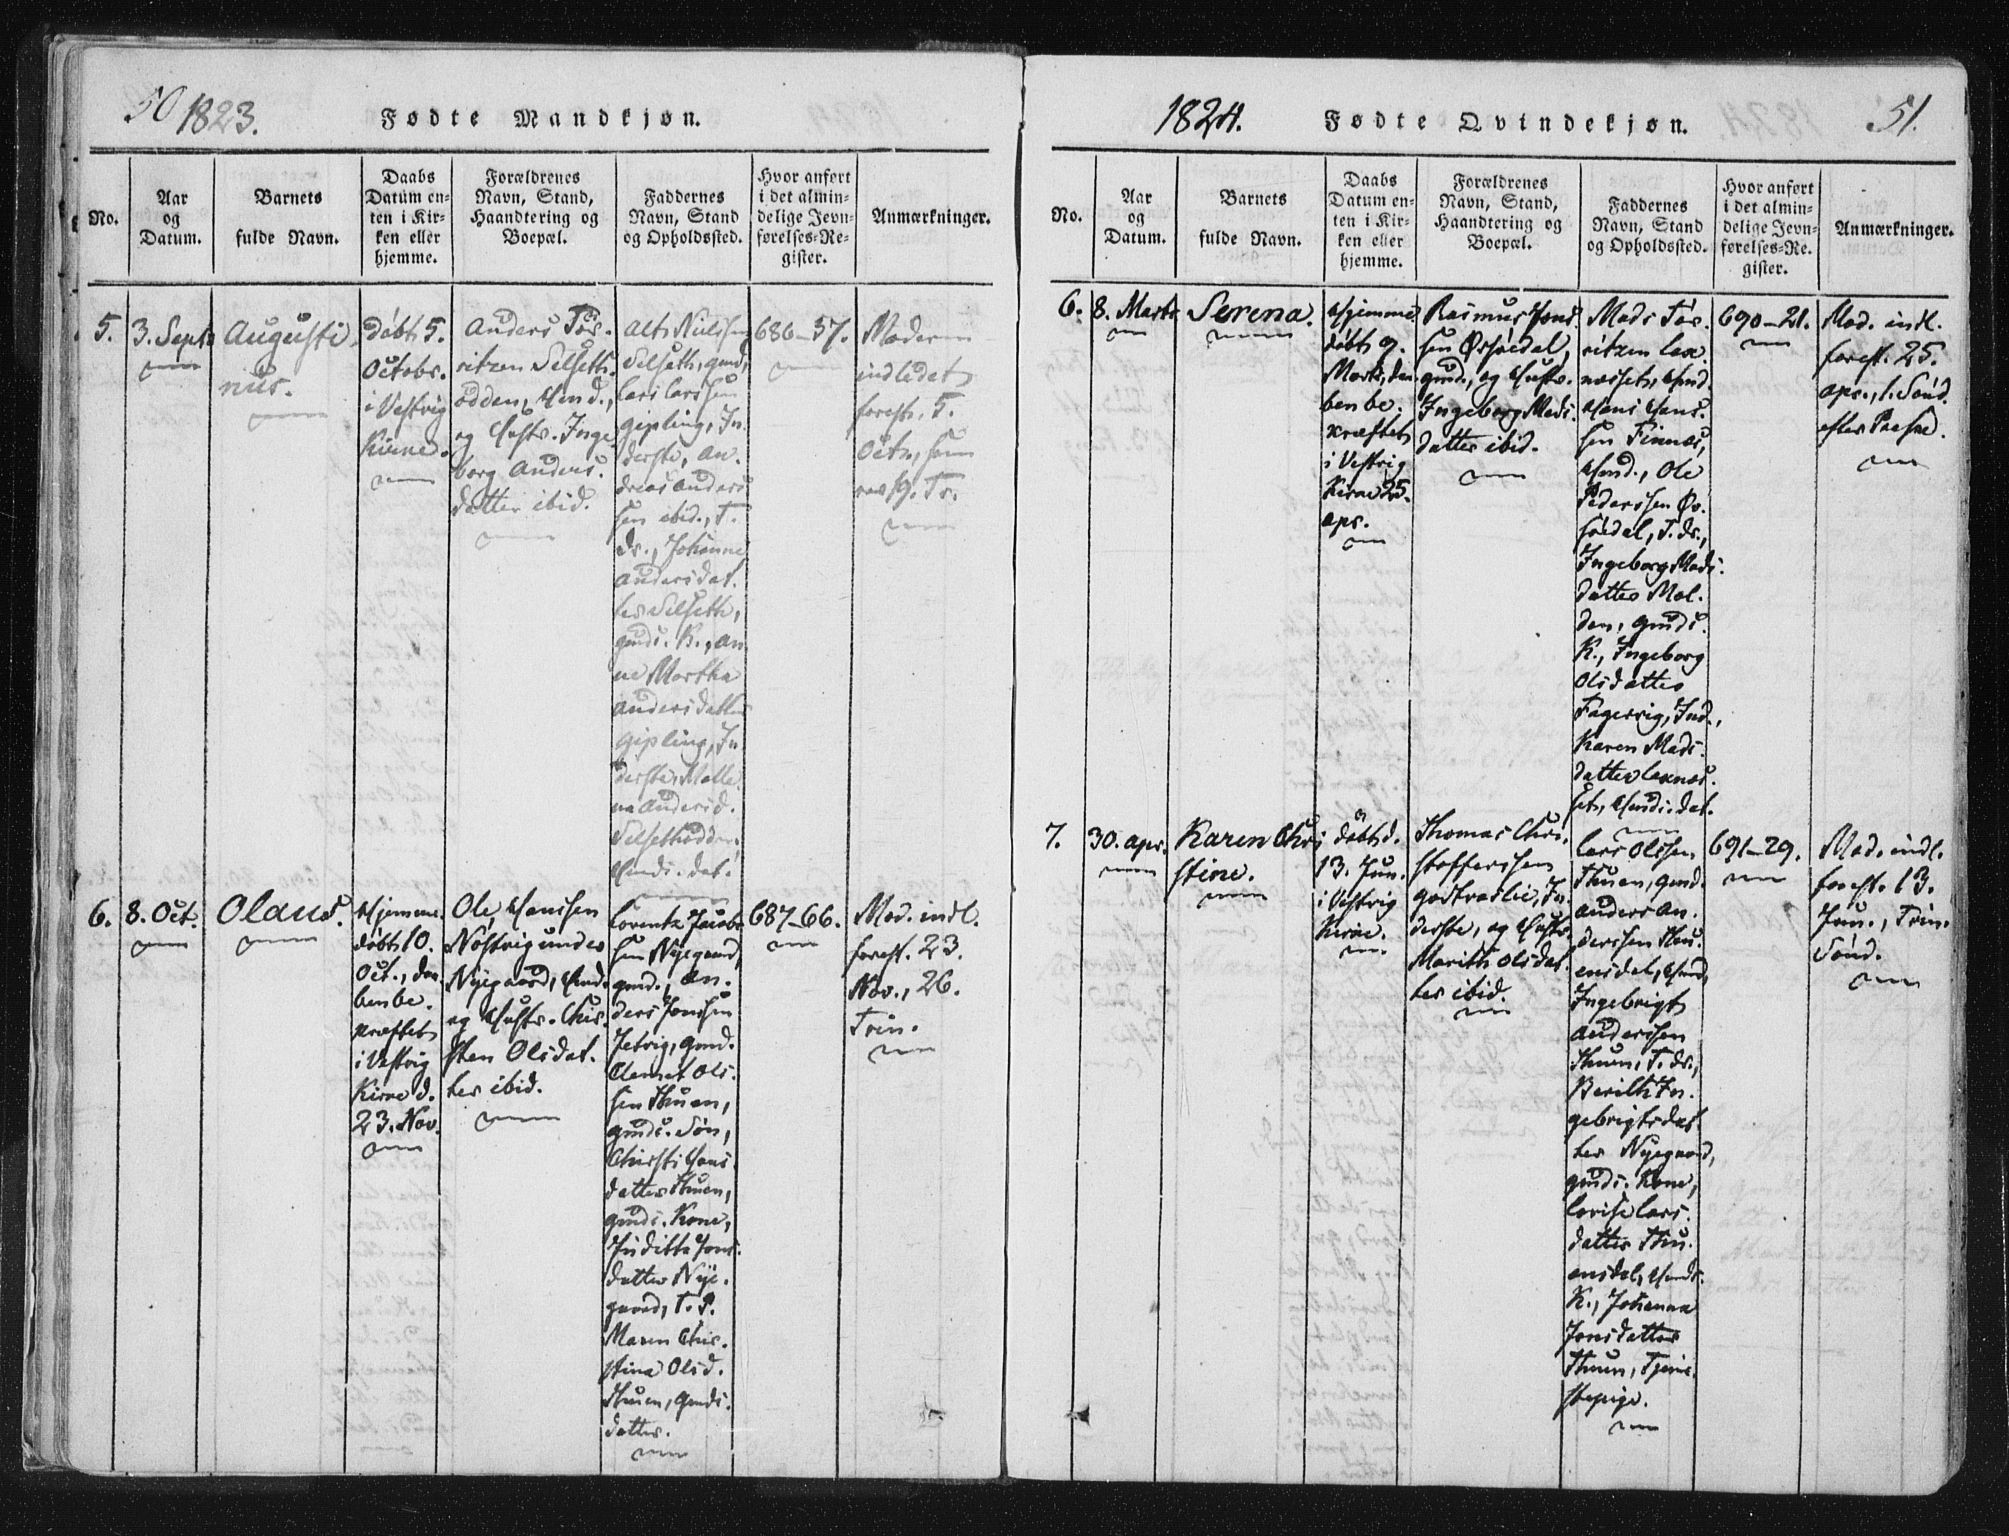 50 1823.
Fødte Mandkjøn.
No.
Aar
og
Datum.
Barnets
fulde Navn.
Daabs
Datum en-
ten i Kir-
ken eller
hjemme.
Forældrenes
Navn, Stand,
Haandtering og
Boepæl.
Faddernes
Navn, Stand
og Opholdssted.
Hvor anført
i det almin-
delige Jevn-
førelses-Re-
gister.
Anmærkninger.
5.
3. Septr
Augusti
nus.
døbt 5.
Octobr.
i Vestvig
Kirke.
Anders Tør-
ritzen Selseth-
odden, Hmd.,
og Hustr. Inge
borg Anders-
datter ibid.
Nielssen
Selseth, gmd,
Lars Larssen
Gipling, In-
derste, An-
dreas Anders
sen ibid., T.
dr., Johanna
Andersdat-
ter Selseth,
gmds. K., An
ne Martha
Andersdatter
Gipling, In
derste, Malle
na Andersd.
Selsethodden,
Hmds. dat.
686-57.
Moderen
indledet
forest. 5.
Octr., som
var 19. Tr.
6.
8. Oct.
Olaus.
Hjemme
døbt 10.
Oct., daa
ben be-
kræftet
i Vestvig
Kirke d.
23. Nov.
Ole Hanssen
Nostvig under
Nyegaard, Hmd.
og Hustr. Chir-
sten Olsdat-
ter ibid.
Lorentz Jacob
sen Nyegaard,
gmd., An-
ders Jonssen
Jetvig, gmd.
Clemet Ols-
sen Thuen,
gmds. Søn,
Chirsti Hans
datter Thuen,
gmds. Kone,
Juditta Jons-
datter Nye-
gaard, T. P.
Maren Chir-
stina Olsd.
Thuen, gmds.
datter.
687-66.
Mod. indl.
forest. 23.
Nov., 26.
Trin.
1824.
Fødte Qvindekjøn.
51.
No.
Aar
og
Datum.
Barnets
fulde Navn.
Daabs
Datum en-
ten i Kir-
ken eller
hjemme.
Forældrenes
Navn, Stand,
Haandtering og
Boepæl.
Faddernes
Navn, Stand
og Opholdssted.
Hvor anført
i det almin-
delige Jevn-
førelses-Re-
gister.
Anmærkninger.
6.
8. Marts
Serena.
Hjemme
døbt 9.
Marts, daa
ben be-
kræftet
i Vestvig
Kirke 25.
apr.
Rasmus Jons
sen Øvsøedal,
gmd., og Hustr.
Ingeborg Mads-
datter ibid.
Mads Tør-
ritzen Lax-
næsset, Hmd.
Hans Hans-
sen Finnæs,
Hmd., Ole
Pederssen Øv-
søedal, T. dr.,
Ingeborg Mads-
datter Mol-
den, gmds.
K., Ingeborg
Olsdatter
Fagervig, Ind.,
Karen Mads-
datter Laxnæs-
set, Hmds. dat.
690-21.
Mod. indl.
forest. 25.
apr., 1. Sønd.
efter Paaske.
7.
30. apr.
Karen Chri
stine.
døbt d.
13. Jun.
i Vestvig
Kirke.
Thomas Chri-
stofferssen
Godtvaslie, In-
derste, og Hustr.
Marith Olsdat-
ter ibid.
Lars Olssen
Thuen, gmd.
Anders An-
derssen Thu-
ensdal, Hmd,
Ingebrigt
Anderssen
Thuen, T. dr.,
Berith In-
gebrigtsdat-
ter Nyegaard,
gmds. Kone,
Lovise Lars-
datter Thu-
ensdal, Hmds.
K., Johanna
Jonsdatter
Thuen, Tjene-
stepige.
691-29.
Mod. indl.
forest. 13.
Jun., Trin.
Sønd.